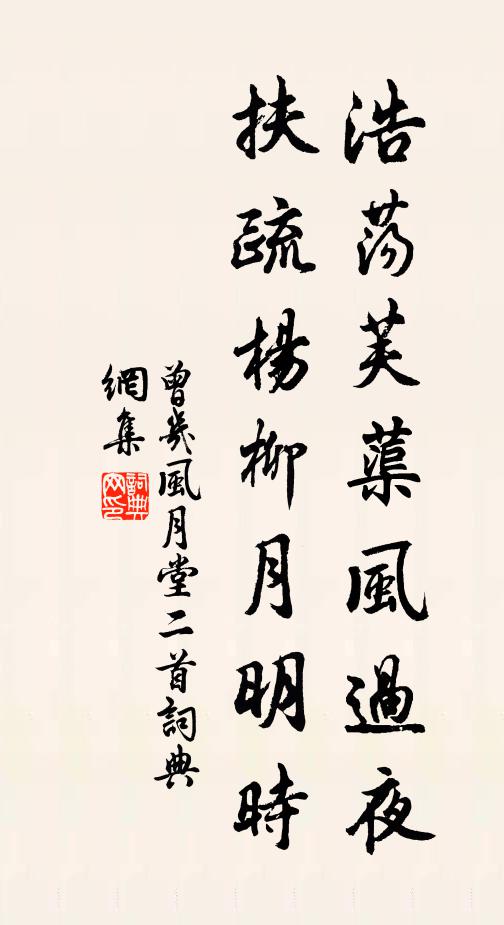 浩荡芙蕖風過夜
扶疏楊柳月明時
曾幾風月堂二首詞典
網集
詞典網印